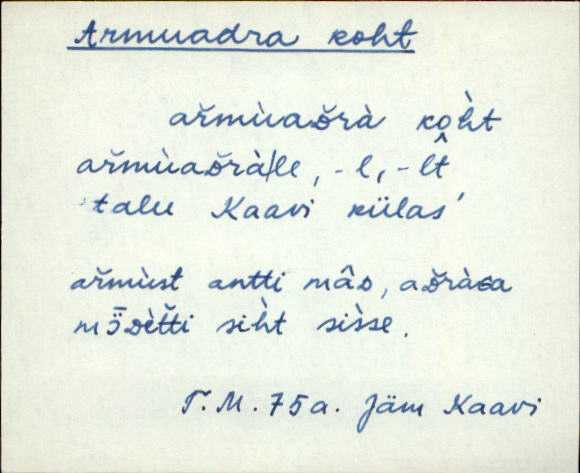 Armuadra koht
ařmùaᴅ̆rà kòh̀t
ařmùaᴅ̆ràlle, -l, -lt̂
talu Kaavi külas'
ařmùst antti mâᴅ, aᴅ̆ràɢa
mȭᴅètti sìht sìsse.
T. M. 75a. Jäm Kaavi